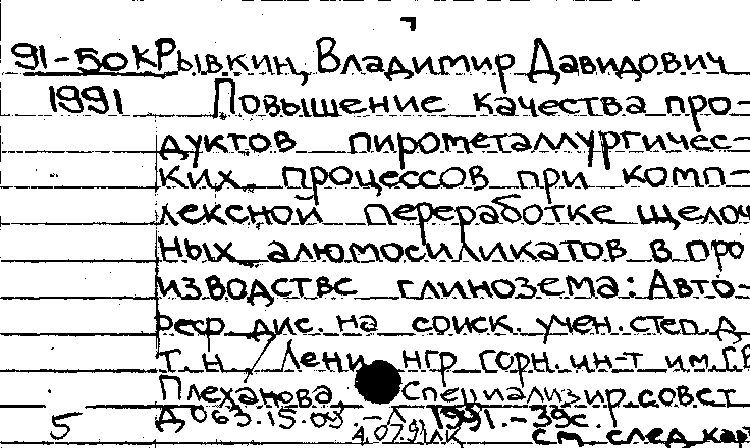 91-50К Рывкин, Владимир Давидович
1991 Повышение качества про-
дуктов пирометаллургичес-
ких процессов при комп-
лексной переработке щелоч
ных алюмосиликатов в про
изводстве глинозема: Авто-
реф. дис. на соиск. учен. степ. д
т. н. / Ленингр горн. ин-т им. Г.В
Плеханова, Специализир. совет
Д 063.15.03. - Л 1991. - 39с.
5 см. след кар